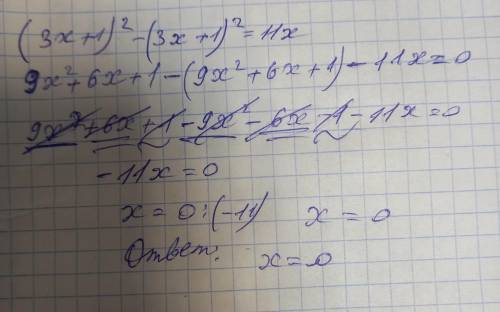 (3x+1)²-(3x+1)²=11x
9x²+6x+1-(9x²+6x+1)-11x=0
9x²+6x+1-9x²-6x-1-11x=0
-11x=0
x=0:(-11) x=0
Ответ: x=0